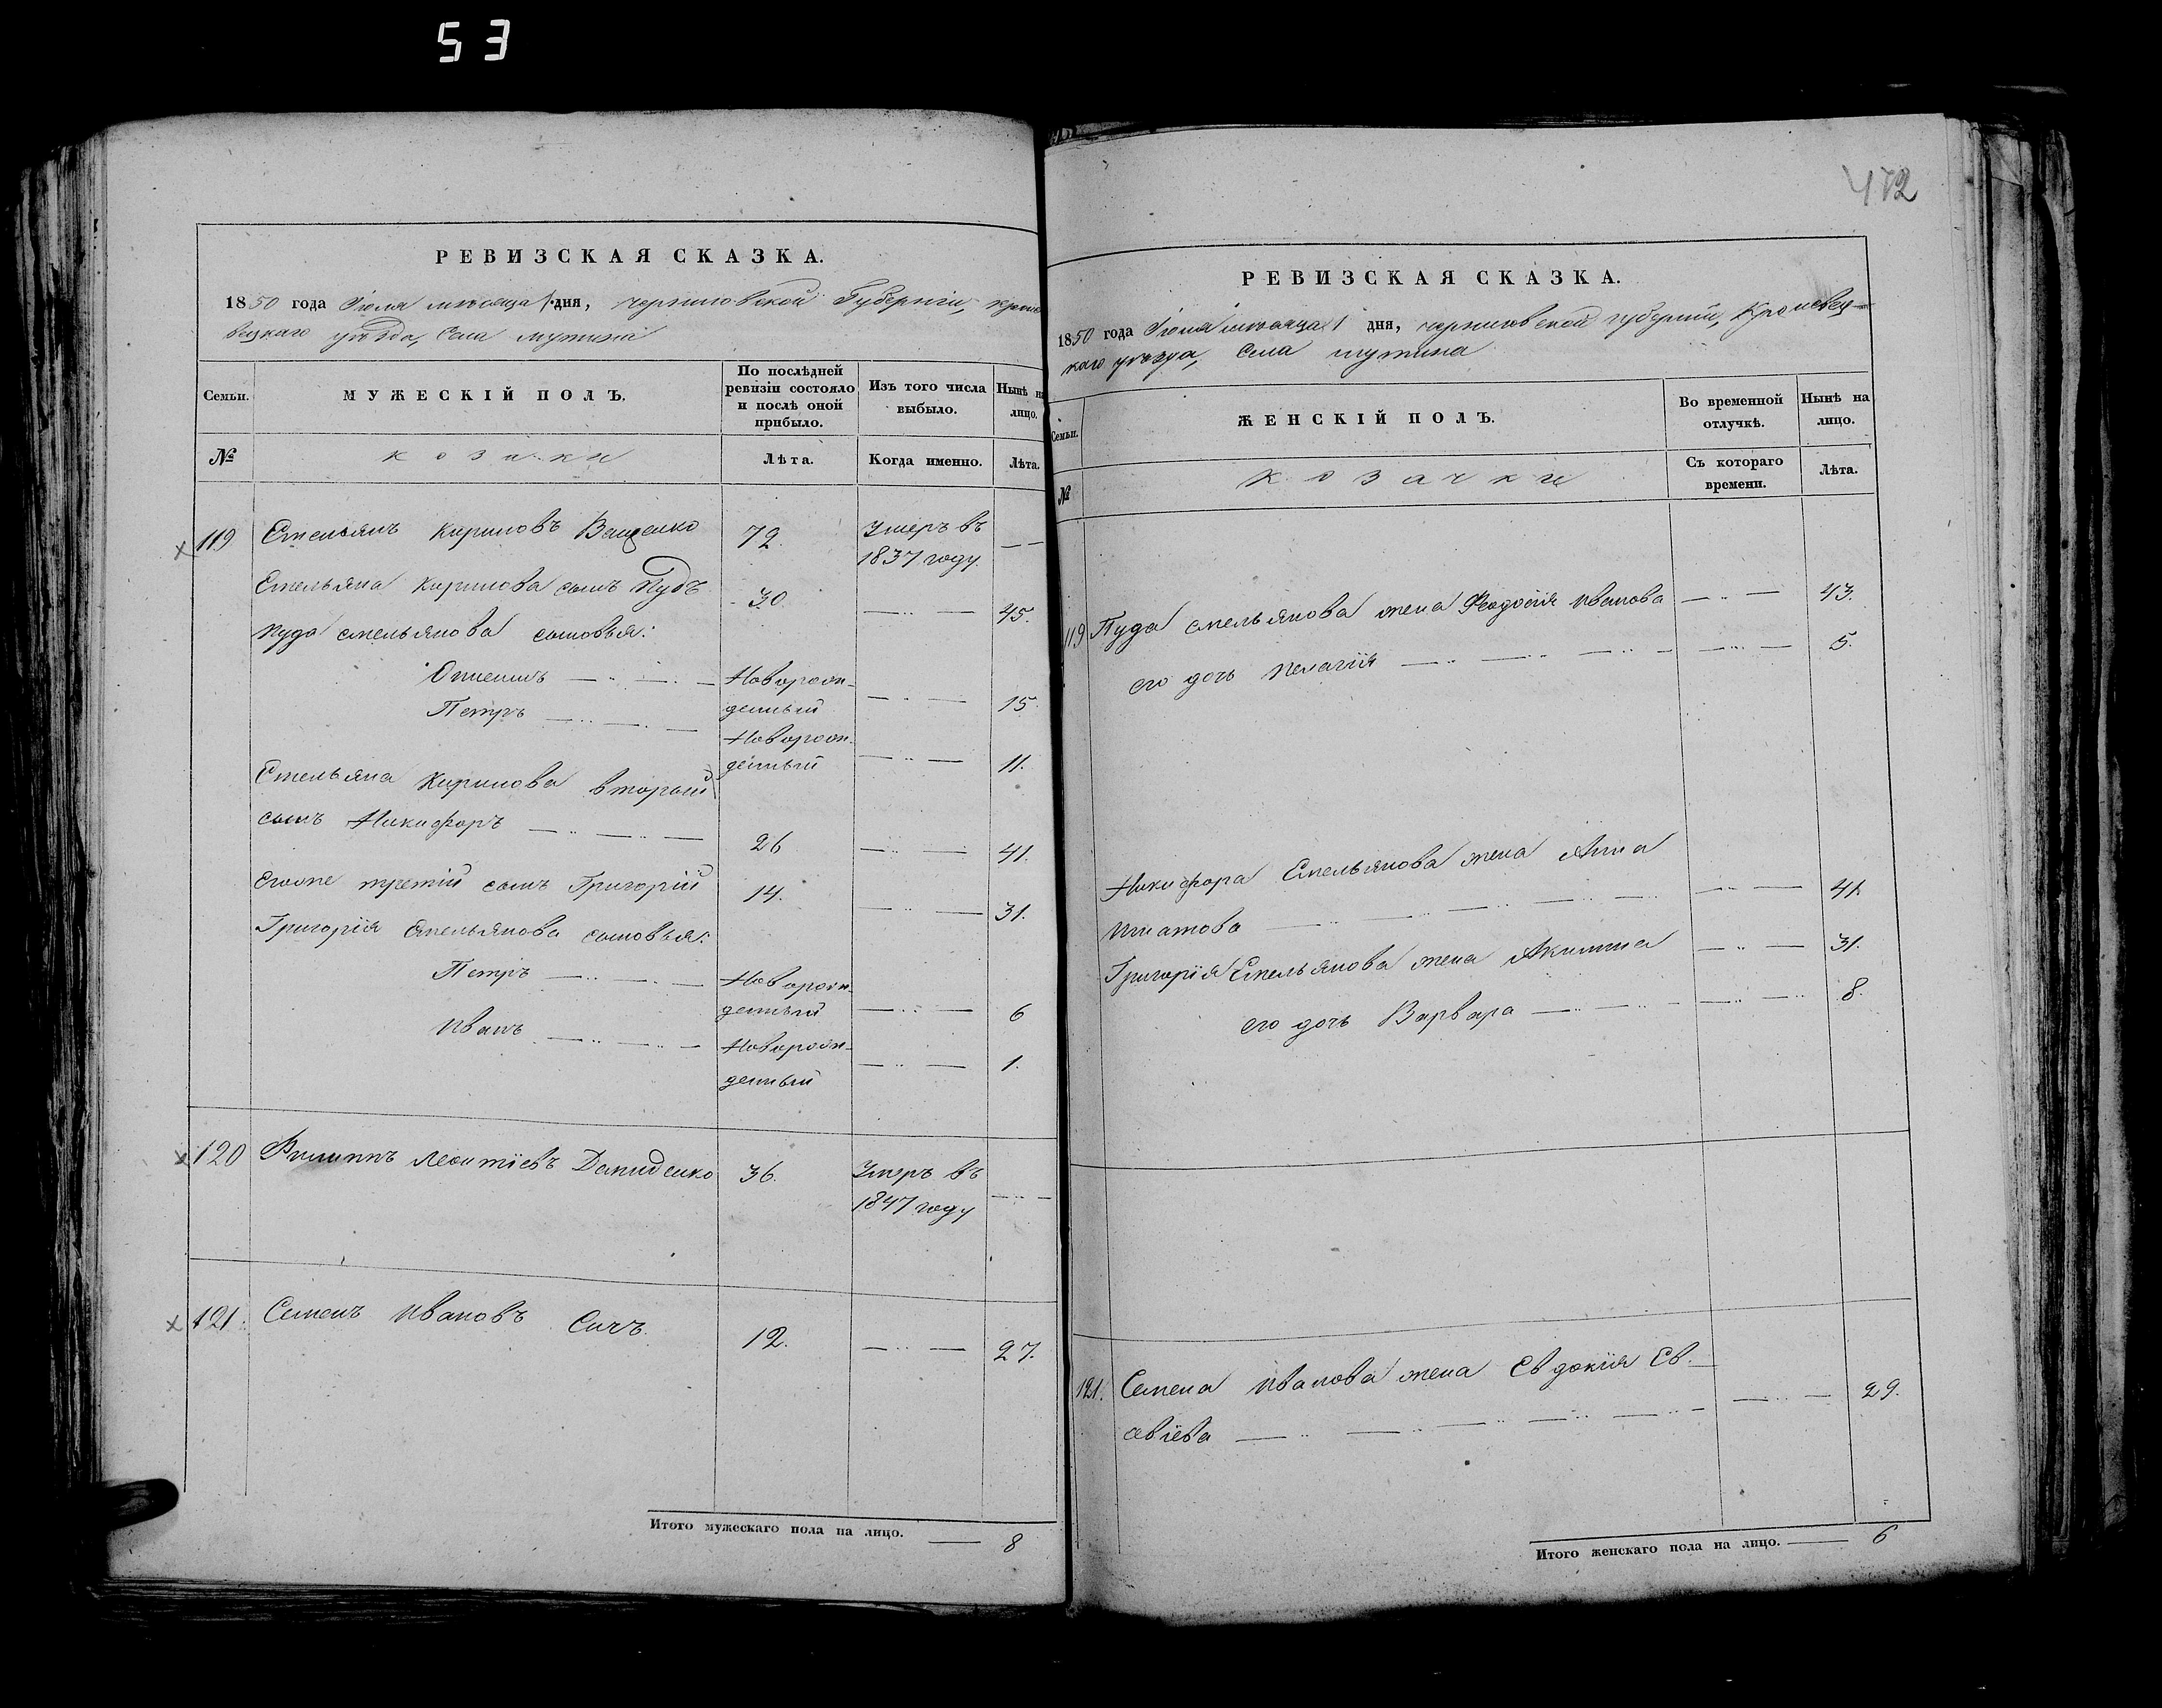 53
РЕВИЗСКАЯ СКАЗКА.
1850 года Іюля мѣсяца 1 дня, черниговской Губерніи, кроле
вецкаго уѣзда, Села мутина
Семьи.
МУЖЕСКІЙ ПОЛЪ.
По послѣдней ревизіи состояло и послѣ оной прибыло.
Изъ того числа выбыло.
Нынѣ на лицо.
№
козаки
Лѣта.
Когда именно.
Лѣта.
119 Емельянъ Кириловъ Ващенко 72. Умеръ въ 1837 году
Емельяна Кирилова сынъ Пудъ 30. 45.
Пуда емельянова сыновья:
Онисимъ Новорож-
денный 15.
Петръ Новорож-
денный 11.
Емельяна Кирилова вторый
сынъ Никифоръ 26 41.
Егоже третій сынъ Григорій 14. 31.
Григорія Емельянова сыновья:
Петръ Новорож-
денный 6
Иванъ Новорож-
денный 1.
120 Филиппъ Леонтіевъ Даниденко 36. Умеръ въ
1847 году
121. Семенъ Ивановъ Сичъ. 12. 27.
Итого мужескаго пола на лицо. 8
472
РЕВИЗСКАЯ СКАЗКА.
1850 года Іюля мѣсяца 1 дня, черниговской губерніи, Кролевец-
каго уѣзда, Села мутина
Семьи.
ЖЕНСКІЙ ПОЛЪ.
Во временной отлучкѣ.
Нынѣ на лицо.
№
козачки
Съ котораго времени.
Лѣта.
119 Пуда емельянова жена Феодосія Иванова 43.
его дочь Пелагія 5.
Никифора Емельянова жена Анна
Игнатова 41.
Григорія Емельянова жена Акилина 31.
его дочь Варвара 8.
121. Семена Иванова жена Евдокія Ев-
сѣвіева 29.
Итого женскаго пола на лицо. 6